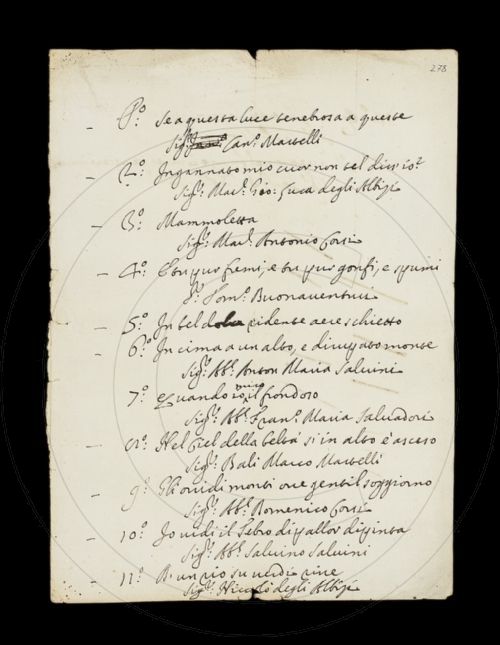 278
P.º Se a questa luce tenebrosa a queste
Sig.r Can.º Martelli
2.º Ingannato mio cuor non tel diss' io?
Sig.r Mar.e Gio: Luca degli Albizi
3.º Mammoletta
Sig.r Mar.e Antonio Corsi
4.º E tu pur fremi, e tu pur gonfi, e spumi
S.r Tom.º Buonaventuri
5.º In bel ridente aere schietto
6.º In cima a un alto, e dirupato monte
Sig.r Ab.e Anton Maria Salvini
7.º Quando miro il frondoso
Sig.r Ab.e Fran.º Maria Salvadori
8.º Nel Ciel della beltà sì in alto è asceso
Sig.r Bali Marco Martelli
9.º Gli ovidi monti ove gentil soggiorno
Sig.r Ab.e Domenico Corsi
10.º Io vidi il Sebro di pallor dipinta
Sig.r Ab.e Salvino Salvini
11.º D'un rio su verdi rive
Sig.r Niccolò degli Albizi